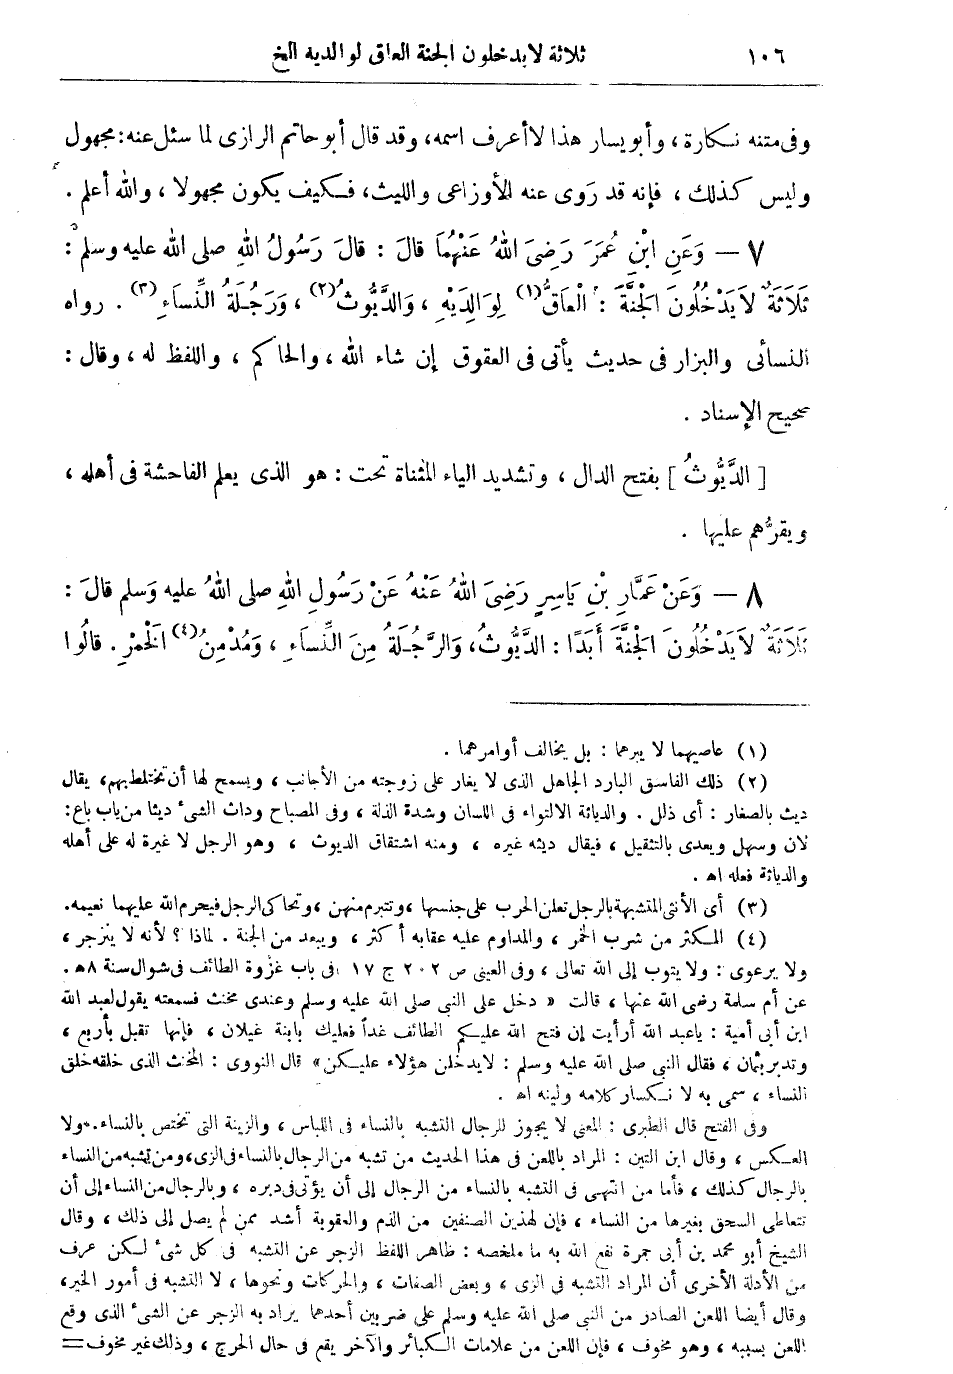 ١٠٦ ثلاثة لا يدخلون الجنة العاق لوالديه الخ
وفى متنه نكارة ، وأبو يسار هذا لا أعرف اسمه ، وقد قال أبو حاتم الرازى لما سئل عنه : مجهول
وليس كذلك ، فإنه قد رَوى عنه الأوزاعى والليث ، فكيف يكون مجهولا ، والله أعلم .
٧ — وَعَنِ ابْنِ عُمَرَ رَضِىَ اللهُ عَنْهُمَا قالَ : قالَ رَسُولُ اللهِ صلى الله عليه وسلم :
ثَلَاثَةٌ لَا يَدْخُلُونَ الجَنَّةَ : الْعَاقُّ (١) لِوَالِدَيْهِ ، وَالدَّيُّوثُ (٢) ، وَرَجُلَةُ النِّسَاءِ (٣) . رواه
النسائى والبزار فى حديث يأتى فى العقوق إن شاء الله ، والحاكم ، واللفظ له ، وقال :
صحيح الإسناد .
[ الدَّيُّوثُ ] بفتح الدال ، وتشديد الياء المثناة تحت : هو الذى يعلم الفاحشة فى أهله ،
ويقرُّهم عليها .
٨ — وَعَنْ عَمَّارِ بْنِ يَاسِرٍ رَضِىَ اللهُ عَنْهُ عَنْ رَسُولِ اللهِ صلى اللهُ عليه وَسلم قالَ :
ثَلَاثَةٌ لَا يَدْخُلُونَ الجَنَّةَ أَبَدًا : الدَّيُّوثُ ، وَالرَّجُلَةُ مِنَ النِّسَاءِ ، وَمُدْمِنُ (٤) الْخَمْرِ . قالُوا
(١) عاصيهما لا يبرهما : بل يخالف أوامرهما .
(٢) ذلك الفاسق البارد الجاهل الذى لا يغار على زوجته من الأجانب ، ويسمح لها أن تختلط بهم ، يقال
ديث بالصغار : أى ذلل . والدياثة الالتواء فى اللسان وشدة الذلة ، وفى المصباح وداث الشىء ديثا من باب باع :
لان وسهل ويعدى بالتثقيل ، فيقال ديثه غيره ، ومنه اشتقاق الديوث ، وهو الرجل لا غيرة له على أهله
والدياثة فعله اه .
(٣) أى الأنثى المتشبهة بالرجل تعلن الحرب على جنسها ، وتتبرم منهن ، وتحاكى الرجل فيحرم الله عليهما نعيمه .
(٤) المكثر من شرب الخمر ، والمداوم عليه عقابه أكثر ، ويبعد من الجنة . لماذا ؟ لأنه لا ينزجر ،
ولا يرعوى : ولا يتوب إلى الله تعالى ، وفى العينى ص ٢٠٢ ج ١٧ فى باب غزوة الطائف فى شوال سنة ٨ه .
عن أم سلمة رضى الله عنها ، قالت « دخل على النبى صلى الله عليه وسلم وعندى مخنث فسمعته يقول لعبد الله
ابن أبى أمية : يا عبد الله أرأيت إن فتح الله عليكم الطائف غداً فعليك بابنة غيلان ، فإنها تقبل بأربع ،
وتدبر بثمان ، فقال النبى صلى الله عليه وسلم : لا يدخلن هؤلاء عليكن » قال النووى : المخنث الذى خلقه خلق
النساء ، سمى به لانكسار كلامه ولينه اه .
وفى الفتح قال الطبرى : المعنى لا يجوز للرجال التشبه بالنساء فى اللباس ، والزينة التى تختص بالنساء . ولا
العكس ، وقال ابن التين : المراد باللعن فى هذا الحديث من تشبه من الرجال بالنساء فى الزى ، ومن تشبه من النساء
بالرجال كذلك ، فأما من انتهى فى التشبه بالنساء من الرجال إلى أن يؤتى فى دبره ، وبالرجال من النساء إلى أن
تتعاطى السحق بغيرها من النساء ، فإن لهذين الصنفين من الذم والعقوبة أشد ممن لم يصل إلى ذلك ، وقال
الشيخ أبو محمد بن أبى جمرة نفع الله به ما ملخصه : ظاهر اللفظ الزجر عن التشبه فى كل شىء لكن عرف
من الأدلة الأخرى أن المراد التشبه فى الزى ، وبعض الصفات ، والحركات ونحوها ، لا التشبه فى أمور الخير ،
وقال أيضا اللعن الصادر من النبى صلى الله عليه وسلم على ضربين أحدهما يراد به الزجر عن الشىء الذى وقع
اللعن بسببه ، وهو مخوف ، فإن اللعن من علامات الكبائر والآخر يقع فى حال الحرج ، وذلك غير مخوف =